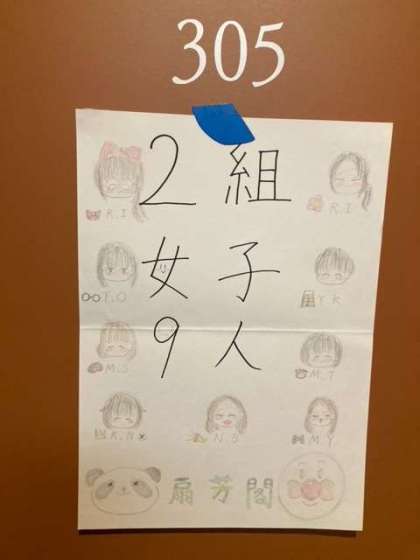 305
2組
R.I R.I
女子
T.O Y.K
9人
M.S M.T
K.N N.S M.Y
扇芳閣